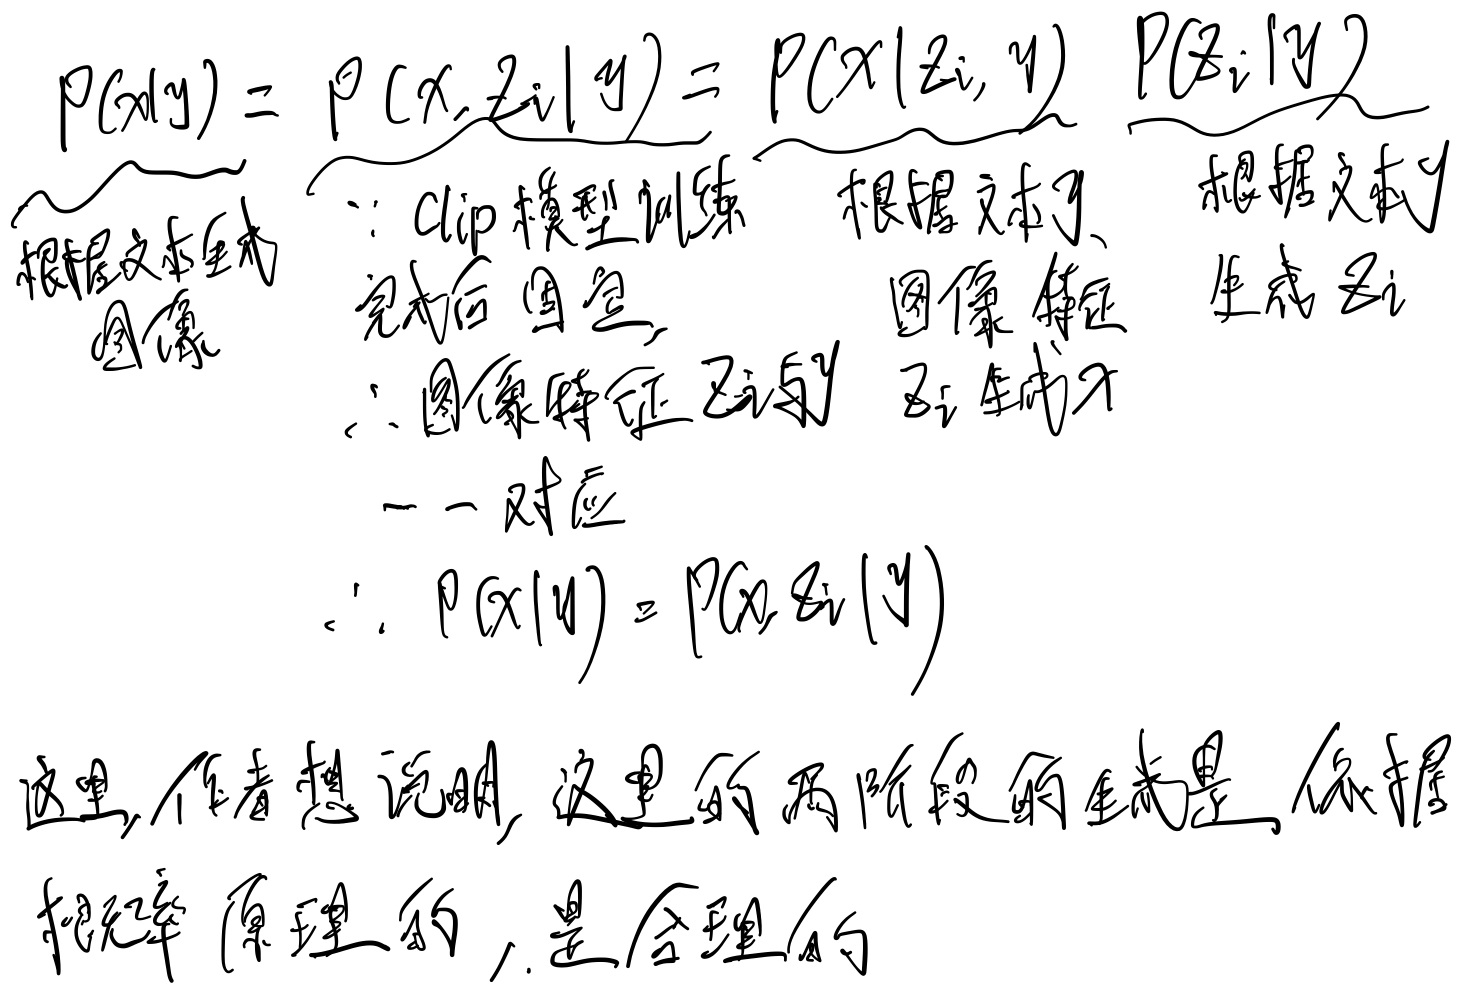 P(x|y) = P(x, zi|y) = P(x|zi, y) P(zi|y)
根据文本生成
图像
∵ Clip模型训练
完成后固定,
∴ 图像特征 zi与y
一一对应
∴ P(x|y) = P(x, zi|y)
根据文本y、
图像特征
zi 生成x
根据文本y
生成 zi
这里,作者想说明,这里的两阶段的生成是依据
概率原理的,是合理的